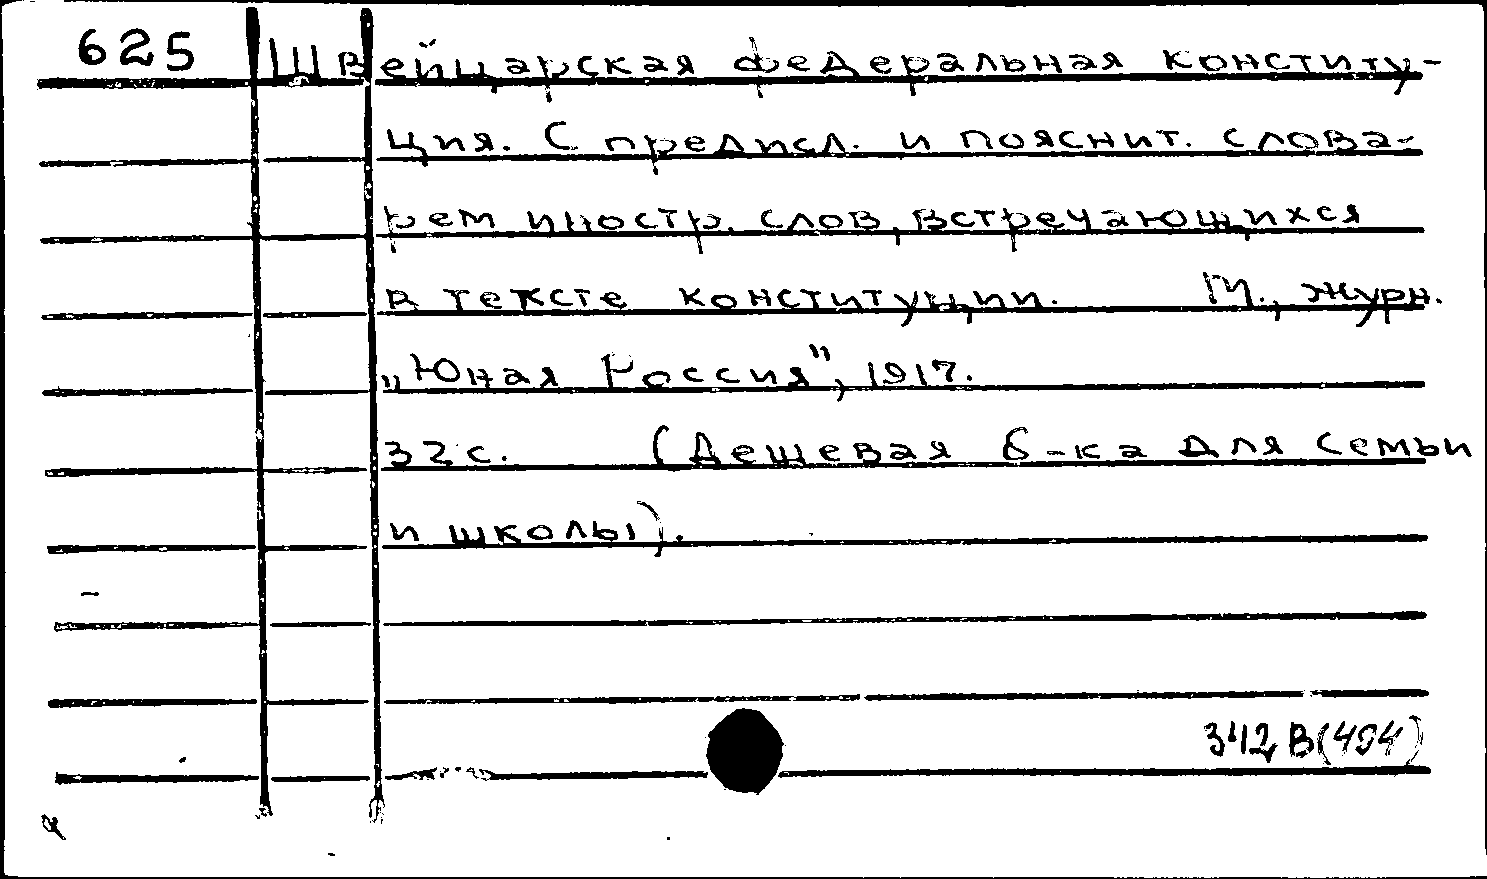 625 Швейцарская федеральная конститу-
ция. С предисл. и пояснит. слова-
рем иностр. слов, встречающихся
в тексте конституции. М., журн.
„Юная Россия", 1917.
32 с. (Дешевая б-ка для семьи
и школы).
342 В(494)